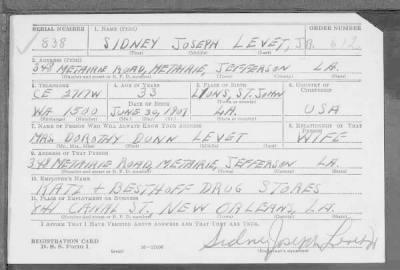 SERIAL NUMBER 1. NAME (Print) ORDER NUMBER
838 SIDNEY JOSEPH LEVET, JR. 612
(First) (Middle) (Last)
2. ADDRESS (Print)
348 METAIRIE ROAD, METAIRIE, JEFFERSON LA.
(Number and street or R. F. D. number) (Town) (County) (State)
3. TELEPHONE 4. AGE IN YEARS 5. PLACE OF BIRTH 6. COUNTRY OF CITIZENSHIP
CE 3717W 33 LIONS, ST. JOHN
DATE OF BIRTH (Town or county)
WA 1500 JUNE 30, 1907 LA. USA
(Exchange) (Number) (Mo.) (Day) (Yr.) (State or country)
7. NAME OF PERSON WHO WILL ALWAYS KNOW YOUR ADDRESS 8. RELATIONSHIP OF THAT PERSON
MRS DOROTHY DUNN LEVET WIFE
(Mr., Mrs., Miss) (First) (Middle) (Last)
9. ADDRESS OF THAT PERSON
348 METAIRIE ROAD, METAIRIE, JEFFERSON LA.
(Number and street or R. F. D. number) (Town) (County) (State)
10. EMPLOYER'S NAME
KATZ + BESTHOFF DRUG STORES
11. PLACE OF EMPLOYMENT OR BUSINESS
CANAL ST. NEW ORLEANS, LA.
(Number and street or R. F. D. number) (Town) (County) (State)
I AFFIRM THAT I HAVE VERIFIED ABOVE ANSWERS AND THAT THEY ARE TRUE.
REGISTRATION CARD
D. S. S. Form 1 (over) 16-17105 Sidney Joseph Levet Jr